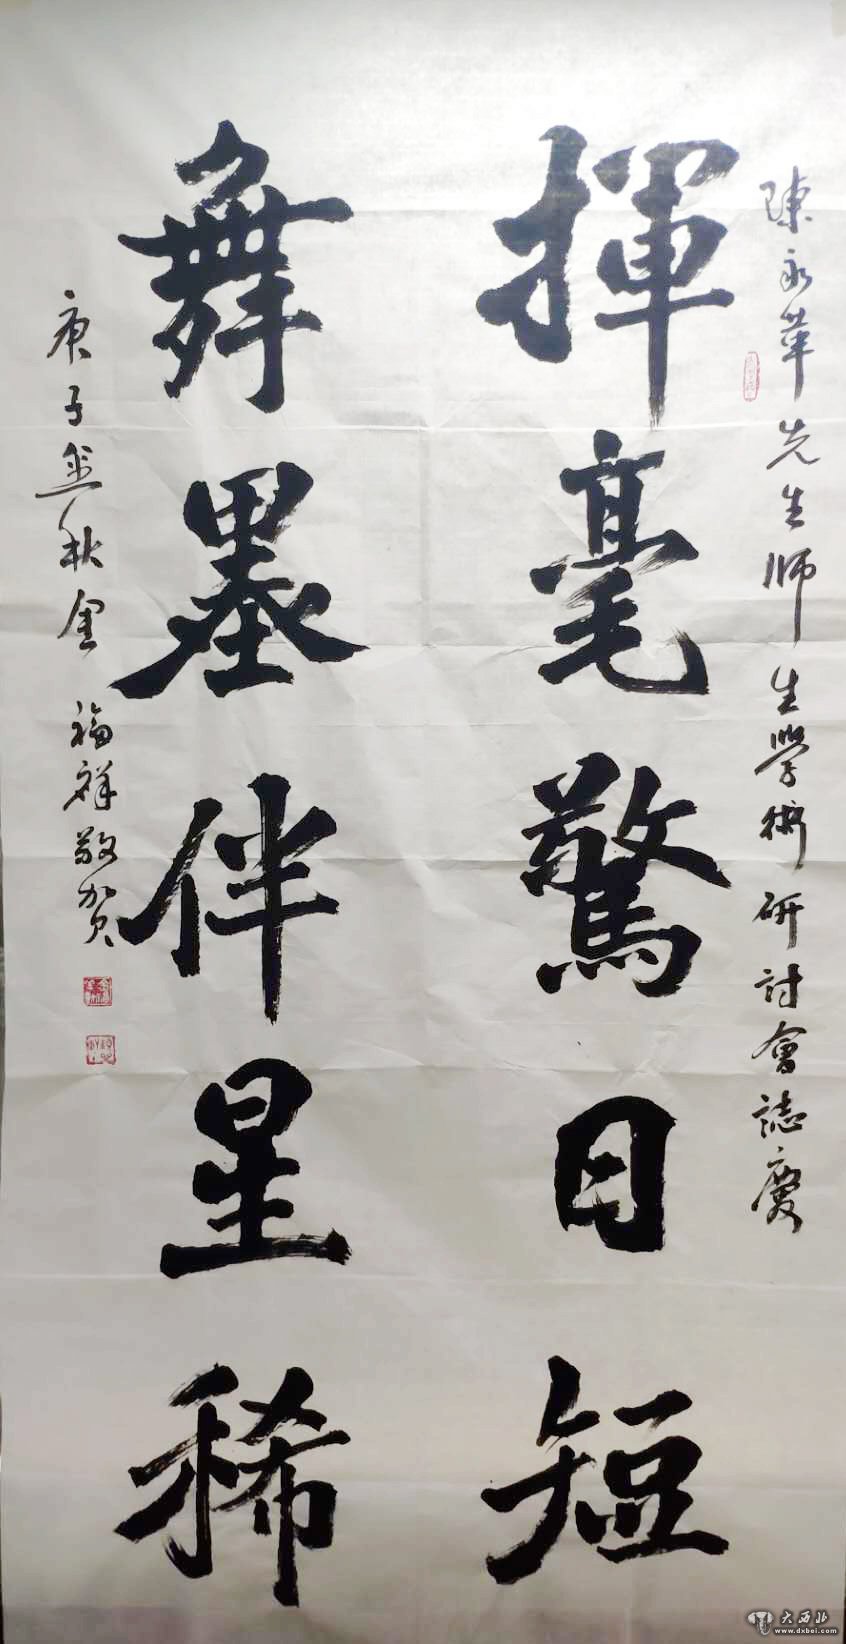 陳永華先生師生學術研討會誌慶
揮毫驚日短
舞墨伴星稀
庚子金秋
福祥敬贺
大西北
www.dxbei.com